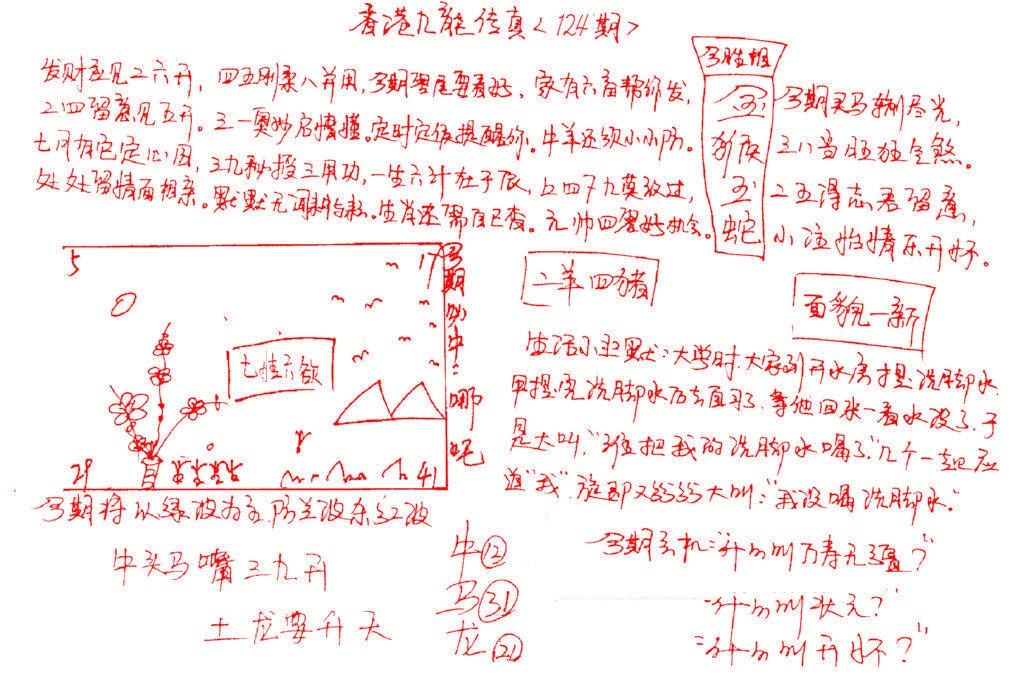 香港九龙传真<124期>
发财应见二六开，四五刚柔八并用，今期噐尾要看好，家有六畜帮你发，
二四留意见五开。三一奥妙启情懂。定时定位提醒你。牛羊还须小小防。
七月有它定心因，三九秒投三用功，一生六计在于辰，上四下九莫放过，
处处留情面相亲。默默无闻。生肖还需自己变。元帅四好机会。
今期灵马剩尽光，
三八当旺狂全煞。
二五得志君留意，
小注怡情乐开怀。
猴
蛇
5
17
七情六欲
29
41
今期必中：哪吒
二羊四猪
面貌一新
生活小幽默：大学时，大家到开水房提洗脚水，
甲提完洗脚水后去自习了，等他回来一看水没了，于
是大叫，"谁把我的洗脚水喝了"几个一起应
道"我"，随即又纷纷大叫："我没喝洗脚水."
今期将以绿波为主，防兰波杀红波
牛头马嘴三九开
土龙要升天
牛⑫
马㉛
龙㉑
今期玄机："什么叫万寿无疆？"
"什么叫状元？"
"什么叫开怀？"